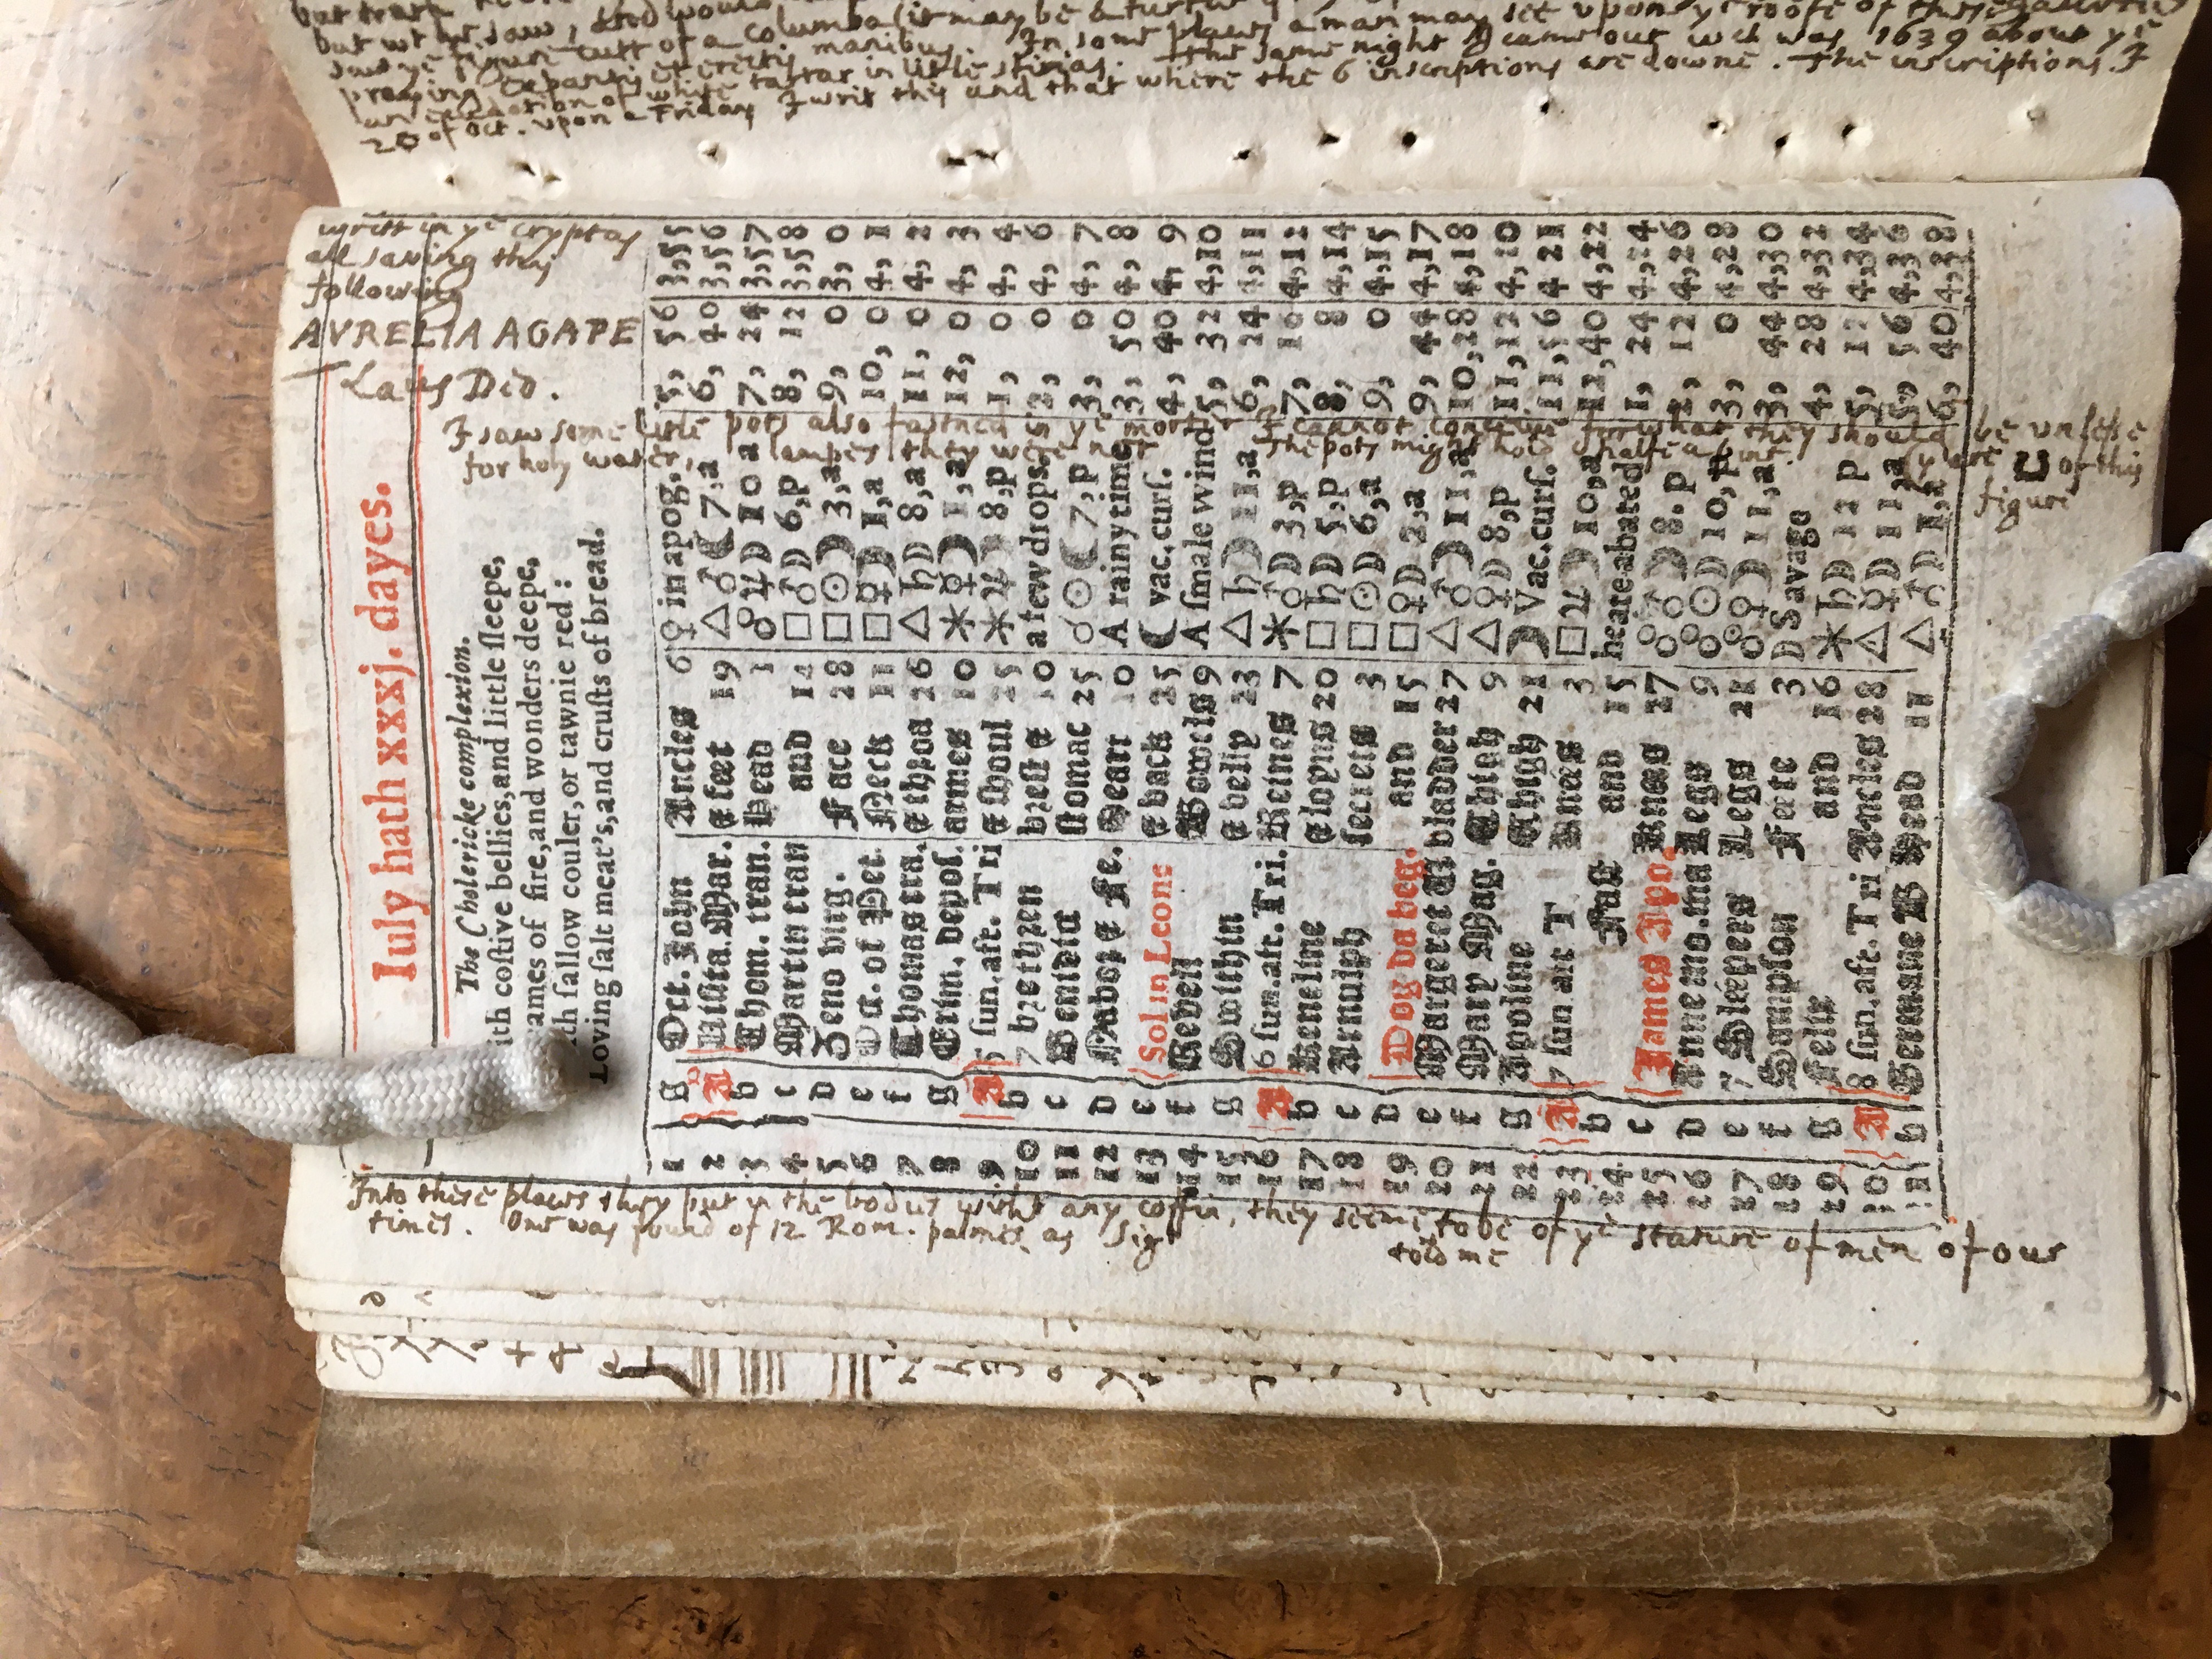 but wt he saw, and would
and ye figure cutt of a columba (it may be a turtur
praying expansis et erectis manibus. In some places a man may see upon ye roofe of these galleries
an exudation of white tartar in little stirias. The same night I came out wch was 1639 about ye
28 of Oct. upon a Friday I writ this and that where the 6 inscriptions are downe. The inscriptions I
writt in ye cryptas
all saving this
following
AVRELIA AGAPE
Laus Deo.
I saw some little pots also fastned in ye morter I cannot conceive for what they should be unlesse
for holy water, lampes they were not The pots might hold halfe a pint. (they are of this
figure
Iuly hath xxxj. dayes.
The Cholericke complexion.
ith costive bellies, and little sleepe,
ames of fire, and wonders deepe,
th sallow couler, or tawnie red:
Loving salt meat's, and crusts of bread.
1 g Oct. John Ancles 6 ♀ in apog. 5, 56 3,55
2 A Visita. Mar. & feet 19 △ ♂ ☾ 7,a 6, 40 3,56
3 b Thom. tran. Head 1 ☍ ♃ ☽ 10 a 7, 24 3,57
4 c Martin tran and 14 □ ♂ ☽ 6,p 8, 12 3,58
5 d Zeno bing. Face 28 □ ☉ ☽ 3,a 9, 0 3, 0
6 e Oct. of Pet. Neck 11 □ ☿ ☽ 1,a 10, 0 4, 1
7 f Thomas tra. & throa 26 △ ♄ ☽ 8,a 11, 0 4, 2
8 g Grim. depos. armes 10 ✶ ♀ ☽ 1,a 12, 0 4, 3
9 A 5 sun. aft. Tri & shoul 25 ✶ ♃ ☽ 8,p 1, 0 4, 4
10 b 7 brethren brest & 10 a few drops. 2, 0 4, 6
11 c Benedict stomac 25 ☌ ☉ ☾ 7,p 3, 0 4, 7
12 d Nabor & Fe. Heart 10 A rainy time 3, 50 4, 8
13 e Sol in Leone & back 25 ☾ vac. curs. 4, 40 4, 9
14 f Revell Bowels 9 A smale wind 5, 32 4,10
15 g Swithin & belly 23 △ ♄ ☽ 11,a 6, 24 4,11
16 A 6 sun. aft. Tri. Reines 7 ✶ ♂ ☽ 3,p 7, 16 4,12
17 b Keneline & loyns 20 □ ♄ ☽ 5,p 8, 8 4,14
18 c Arnulph secrets 3 □ ☉ ☽ 6,a 9, 0 4,15
19 d Dog da beg. and 15 □ ♀ ☽ 2,a 9, 44 4,17
20 e Margeret V bladder 27 △ ♂ ☽ 11,a 10, 28 4,18
21 f Mary Mag. Thigh 9 △ ♀ ☽ 8,p 11, 12 4,20
22 g Apoline Thigh 21 ☽ Vac. curs. 11, 56 4 21
23 A 7 sun aft T Knees 3 □ ♃ ☽ 10,a 12, 40 4,22
24 b Fast and 15 heate abated 1, 24 4,24
25 c James Apo. Knees 27 ☍ ♂ ☽ 8. p 2, 12 4,26
26 d Anne mo. ma Legs 9 ☍ ☉ ☽ 10,p 3, 0 4,28
27 e 7 Sleepers Legs 21 ☍ ♀ ☽ 11,a 3, 44 4,30
28 f Sampson Feete 3 ☽ Savage 4, 28 4,32
29 g Felix and 16 ✶ ♄ ☽ 12 p 5, 12 4,34
30 A 8 sun. aft. Tri Ancles 28 △ ☿ ☽ 11,a 5, 56 4,36
31 b Germane B Head 11 △ ♂ ☽ 1,a 6, 40 4,38
Into these places they put in the bodies witht any coffin, they seeme to be of ye stature of men of our
times. One was found of 12 Rom. palmes as Sigr told me